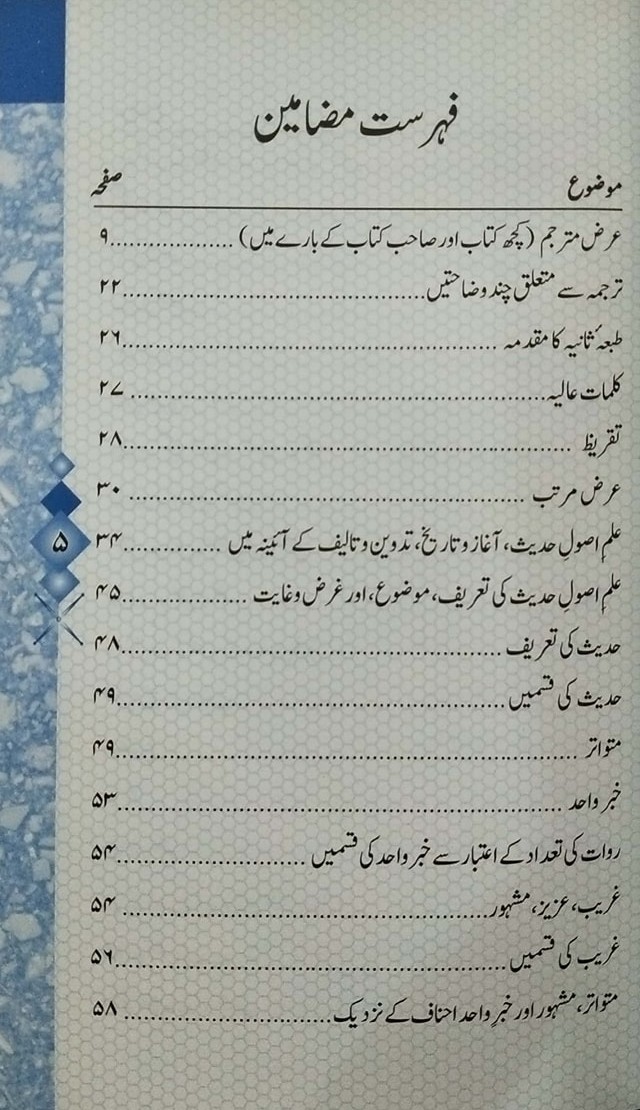 فہرست مضامین
موضوع صفحہ
عرض مترجم (کچھ کتاب اور صاحب کتاب کے بارے میں) ................... ۹
ترجمہ سے متعلق چند وضاحتیں ................... ۲۲
طبعۂ ثانیہ کا مقدمہ ................... ۲۶
کلمات عالیہ ................... ۲۷
تقریظ ................... ۲۸
عرض مرتب ................... ۳۰
علمِ اصولِ حدیث، آغاز و تاریخ، تدوین و تالیف کے آئینہ میں ................... ۳۴
علمِ اصولِ حدیث کی تعریف، موضوع، اور غرض و غایت ................... ۴۵
حدیث کی تعریف ................... ۴۸
حدیث کی قسمیں ................... ۴۹
متواتر ................... ۴۹
خبر واحد ................... ۵۳
روات کی تعداد کے اعتبار سے خبر واحد کی قسمیں ................... ۵۴
غریب، عزیز، مشہور ................... ۵۴
غریب کی قسمیں ................... ۵۶
متواتر، مشہور اور خبرِ واحد احناف کے نزدیک ................... ۵۸
۵